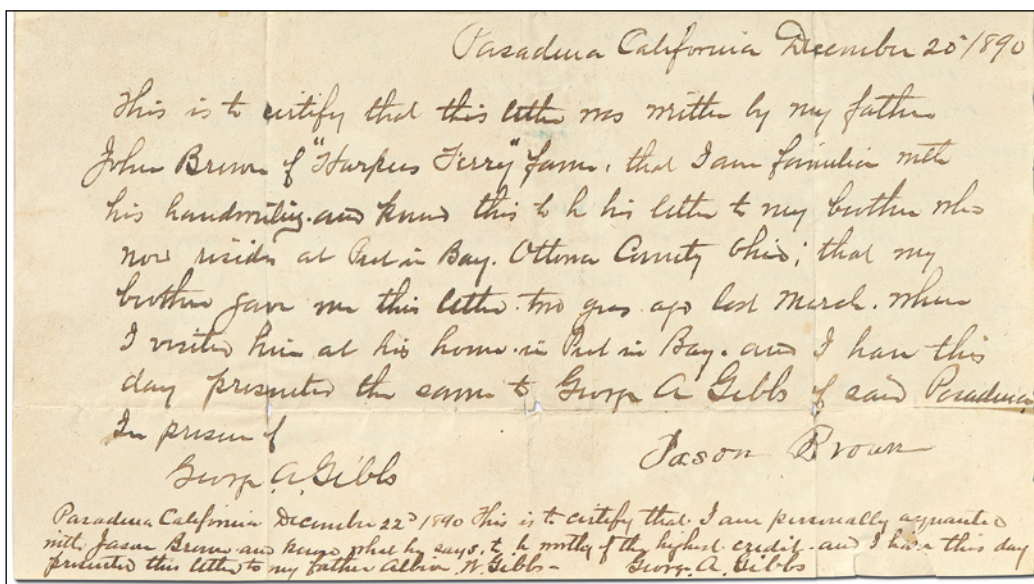 Pasadena California December 20 1890
This is to certify that this letter was written by my father
John Brown of "Harpers Ferry" fame, that I am familiar with
his handwriting and know this to be his letter to my brother who
now resides at Put in Bay. Ottowa County Ohio; that my
brother gave me this letter two years ago last March. when
I visited him at his home in Put in Bay. and I have this
day presented the same to George A Gibbs of said Pasadena
In presence of
Jason Brown
George A. Gibbs
Pasadena California December 22d 1890 This is to certify that I am personally acquainted
with Jason Brown and know what he says to be worthy of the highest credit and I have this day
presented this letter to my father Albion W. Gibbs - George A. Gibbs